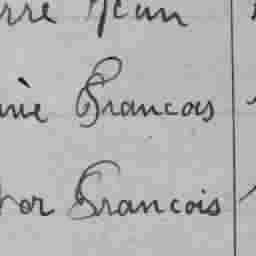 rre Jean
nie Francois
tor Francois